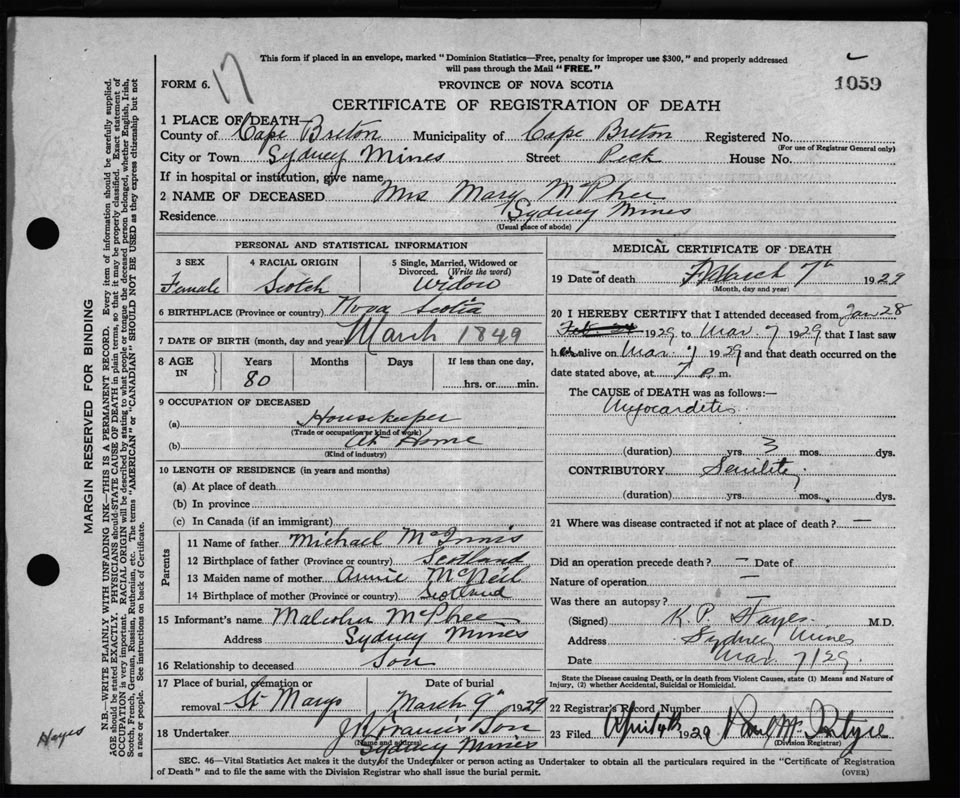 This form if placed in an envelope, marked "Dominion Statistics—Free, penalty for improper use $300," and properly addressed
will pass through the Mail "FREE."
FORM 6. 17 PROVINCE OF NOVA SCOTIA 1059
CERTIFICATE OF REGISTRATION OF DEATH
1 PLACE OF DEATH—
County of Cape Breton Municipality of Cape Breton Registered No.
(For use of Registrar General only)
City or Town Sydney Mines Street Peck House No.
If in hospital or institution, give name
2 NAME OF DECEASED Mrs Mary McPhee
Residence Sydney Mines
(Usual place of abode)
PERSONAL AND STATISTICAL INFORMATION
3 SEX 4 RACIAL ORIGIN 5 Single, Married, Widowed or
Divorced. (Write the word)
Female Scotch Widow
6 BIRTHPLACE (Province or country) Nova Scotia
7 DATE OF BIRTH (month, day and year) March 1849
8 AGE IN Years Months Days If less than one day,
80 hrs. or min.
9 OCCUPATION OF DECEASED
(a) Housekeeper
(Trade or occupation or kind of work)
(b) At Home
(Kind of industry)
10 LENGTH OF RESIDENCE (in years and months)
(a) At place of death
(b) In province
(c) In Canada (if an immigrant)
Parents
11 Name of father Michael McInnis
12 Birthplace of father (Province or country) Scotland
13 Maiden name of mother Annie McNeil
14 Birthplace of mother (Province or country) Scotland
15 Informant's name Malcolm McPhee
Address Sydney Mines
16 Relationship to deceased Son
17 Place of burial, cremation or Date of burial
removal St Marys March 9th 1929
18 Undertaker Son
(Name and address)
Sydney Mines
MEDICAL CERTIFICATE OF DEATH
19 Date of death March 7th 1929
(Month, day and year)
20 I HEREBY CERTIFY that I attended deceased from Jan 28
1929 to Mar 7 1929 that I last saw
her alive on Mar 7 1929 and that death occurred on the
date stated above, at 7 p. m.
The CAUSE OF DEATH was as follows:—
Myocarditis
(duration) yrs. 3 mos. dys.
CONTRIBUTORY Senility
(duration) yrs. mos. dys.
21 Where was disease contracted if not at place of death? —
Did an operation precede death? — Date of
Nature of operation —
Was there an autopsy? —
(Signed) K. P. Hayes M.D.
Address Sydney Mines
Date Mar 7/29
State the Disease causing Death, or in death from Violent Causes, state (1) Means and Nature of
Injury, (2) whether Accidental, Suicidal or Homicidal.
22 Registrar's Record Number
23 Filed April 1929 McIntyre
(Division Registrar)
SEC. 46—Vital Statistics Act makes it the duty of the Undertaker or person acting as Undertaker to obtain all the particulars required in the "Certificate of Registration
of Death" and to file the same with the Division Registrar who shall issue the burial permit. (OVER)
MARGIN RESERVED FOR BINDING
N.B.—WRITE PLAINLY WITH UNFADING INK—THIS IS A PERMANENT RECORD. Every item of information should be carefully supplied.
AGE should be stated EXACTLY. PHYSICIANS should STATE CAUSE OF DEATH in plain terms, so that it may be properly classified. Exact statement of
OCCUPATION is very important. RACIAL ORIGIN will be described by stating to what people or tongue the deceased person belonged, whether English, Irish,
Scotch, French, German, Russian, Ruthenian, etc. The terms "AMERICAN" or "CANADIAN" SHOULD NOT BE USED as they express citizenship but not
a race or people. See instructions on back of Certificate.
Hayes